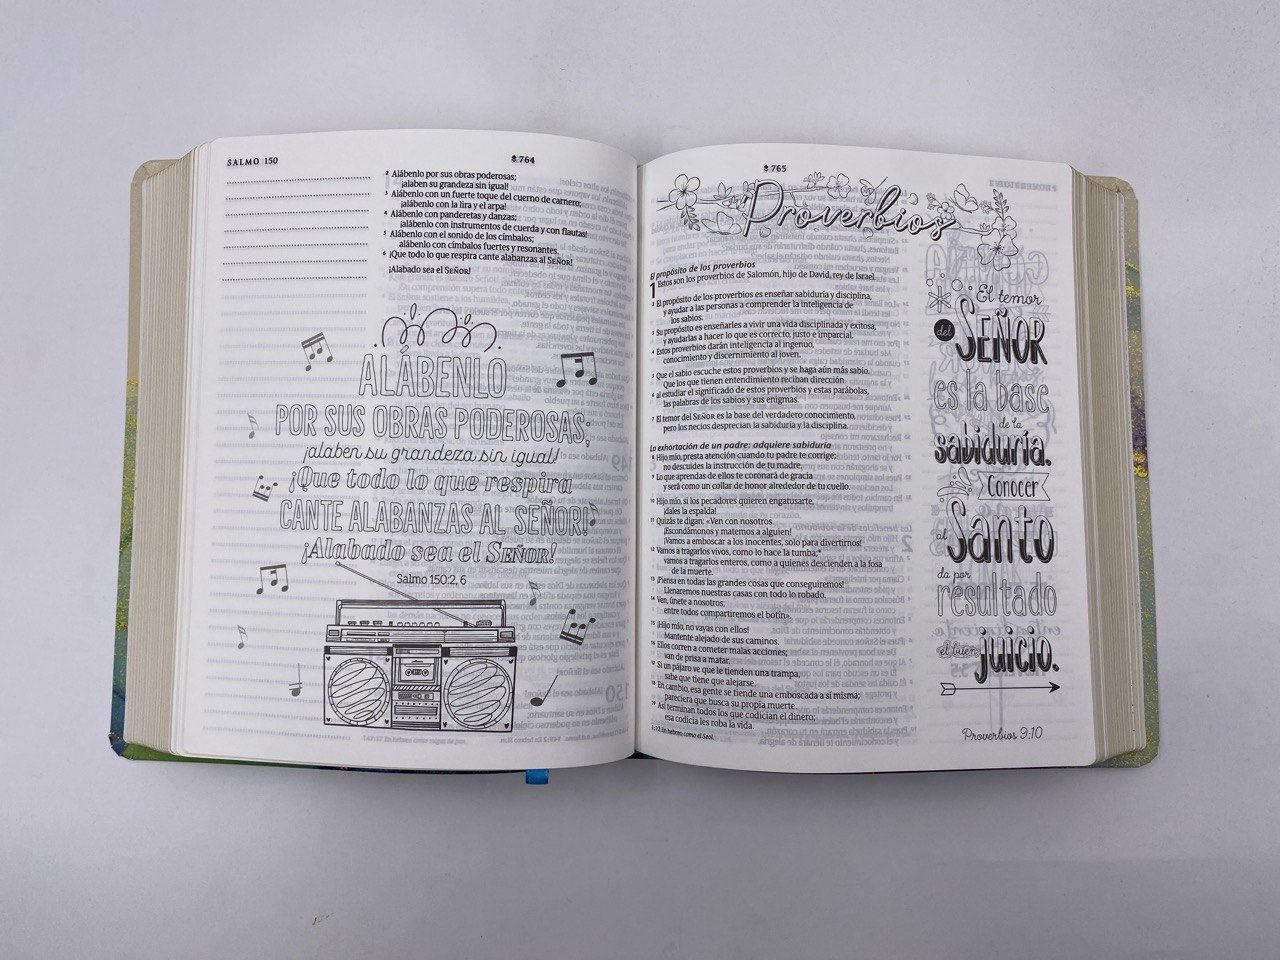 SALMO 150
764
2 Alábenlo por sus obras poderosas;
¡alaben su grandeza sin igual!
3 Alábenlo con un fuerte toque del cuerno de carnero;
¡alábenlo con la lira y el arpa!
4 Alábenlo con panderetas y danzas;
¡alábenlo con instrumentos de cuerda y con flautas!
5 Alábenlo con el sonido de los címbalos;
alábenlo con címbalos fuertes y resonantes.
6 ¡Que todo lo que respira cante alabanzas al SEÑOR!
¡Alabado sea el SEÑOR!
ALÁBENLO
POR SUS OBRAS PODEROSAS;
¡alaben su grandeza sin igual!
¡Que todo lo que respira
CANTE ALABANZAS AL SEÑOR!
¡Alabado sea el SEÑOR!
Salmo 150:2, 6
765
Proverbios
El propósito de los proverbios
1 Estos son los proverbios de Salomón, hijo de David, rey de Israel.
2 El propósito de los proverbios es enseñar sabiduría y disciplina,
y ayudar a las personas a comprender la inteligencia de
los sabios.
3 Su propósito es enseñarles a vivir una vida disciplinada y exitosa,
y ayudarlas a hacer lo que es correcto, justo e imparcial.
4 Estos proverbios darán inteligencia al ingenuo,
conocimiento y discernimiento al joven.
5 Que el sabio escuche estos proverbios y se haga aún más sabio.
Que los que tienen entendimiento reciban dirección
6 al estudiar el significado de estos proverbios y estas parábolas,
las palabras de los sabios y sus enigmas.
7 El temor del SEÑOR es la base del verdadero conocimiento,
pero los necios desprecian la sabiduría y la disciplina.
La exhortación de un padre: adquiere sabiduría
8 Hijo mío, presta atención cuando tu padre te corrige;
no descuides la instrucción de tu madre.
9 Lo que aprendas de ellos te coronará de gracia
y será como un collar de honor alrededor de tu cuello.
10 Hijo mío, si los pecadores quieren engatusarte,
¡dales la espalda!
11 Quizás te digan: «Ven con nosotros.
¡Escondámonos y matemos a alguien!
¡Vamos a emboscar a los inocentes, solo para divertirnos!
12 Vamos a tragarlos vivos, como lo hace la tumba;*
vamos a tragarlos enteros, como a quienes descienden a la fosa
de la muerte.
13 ¡Piensa en todas las grandes cosas que conseguiremos!
Llenaremos nuestras casas con todo lo robado.
14 Ven, únete a nosotros;
entre todos compartiremos el botín».
15 ¡Hijo mío, no vayas con ellos!
Mantente alejado de sus caminos.
16 Ellos corren a cometer malas acciones;
van de prisa a matar.
17 Si un pájaro ve que le tienden una trampa,
sabe que tiene que alejarse.
18 En cambio, esa gente se tiende una emboscada a sí misma;
pareciera que busca su propia muerte.
19 Así terminan todos los que codician el dinero;
esa codicia les roba la vida.
1:12 En hebreo como el Seol.
El temor
del SEÑOR
es la base
de la
sabiduría.
Conocer
al Santo
da por
resultado
el buen juicio.
Proverbios 9:10